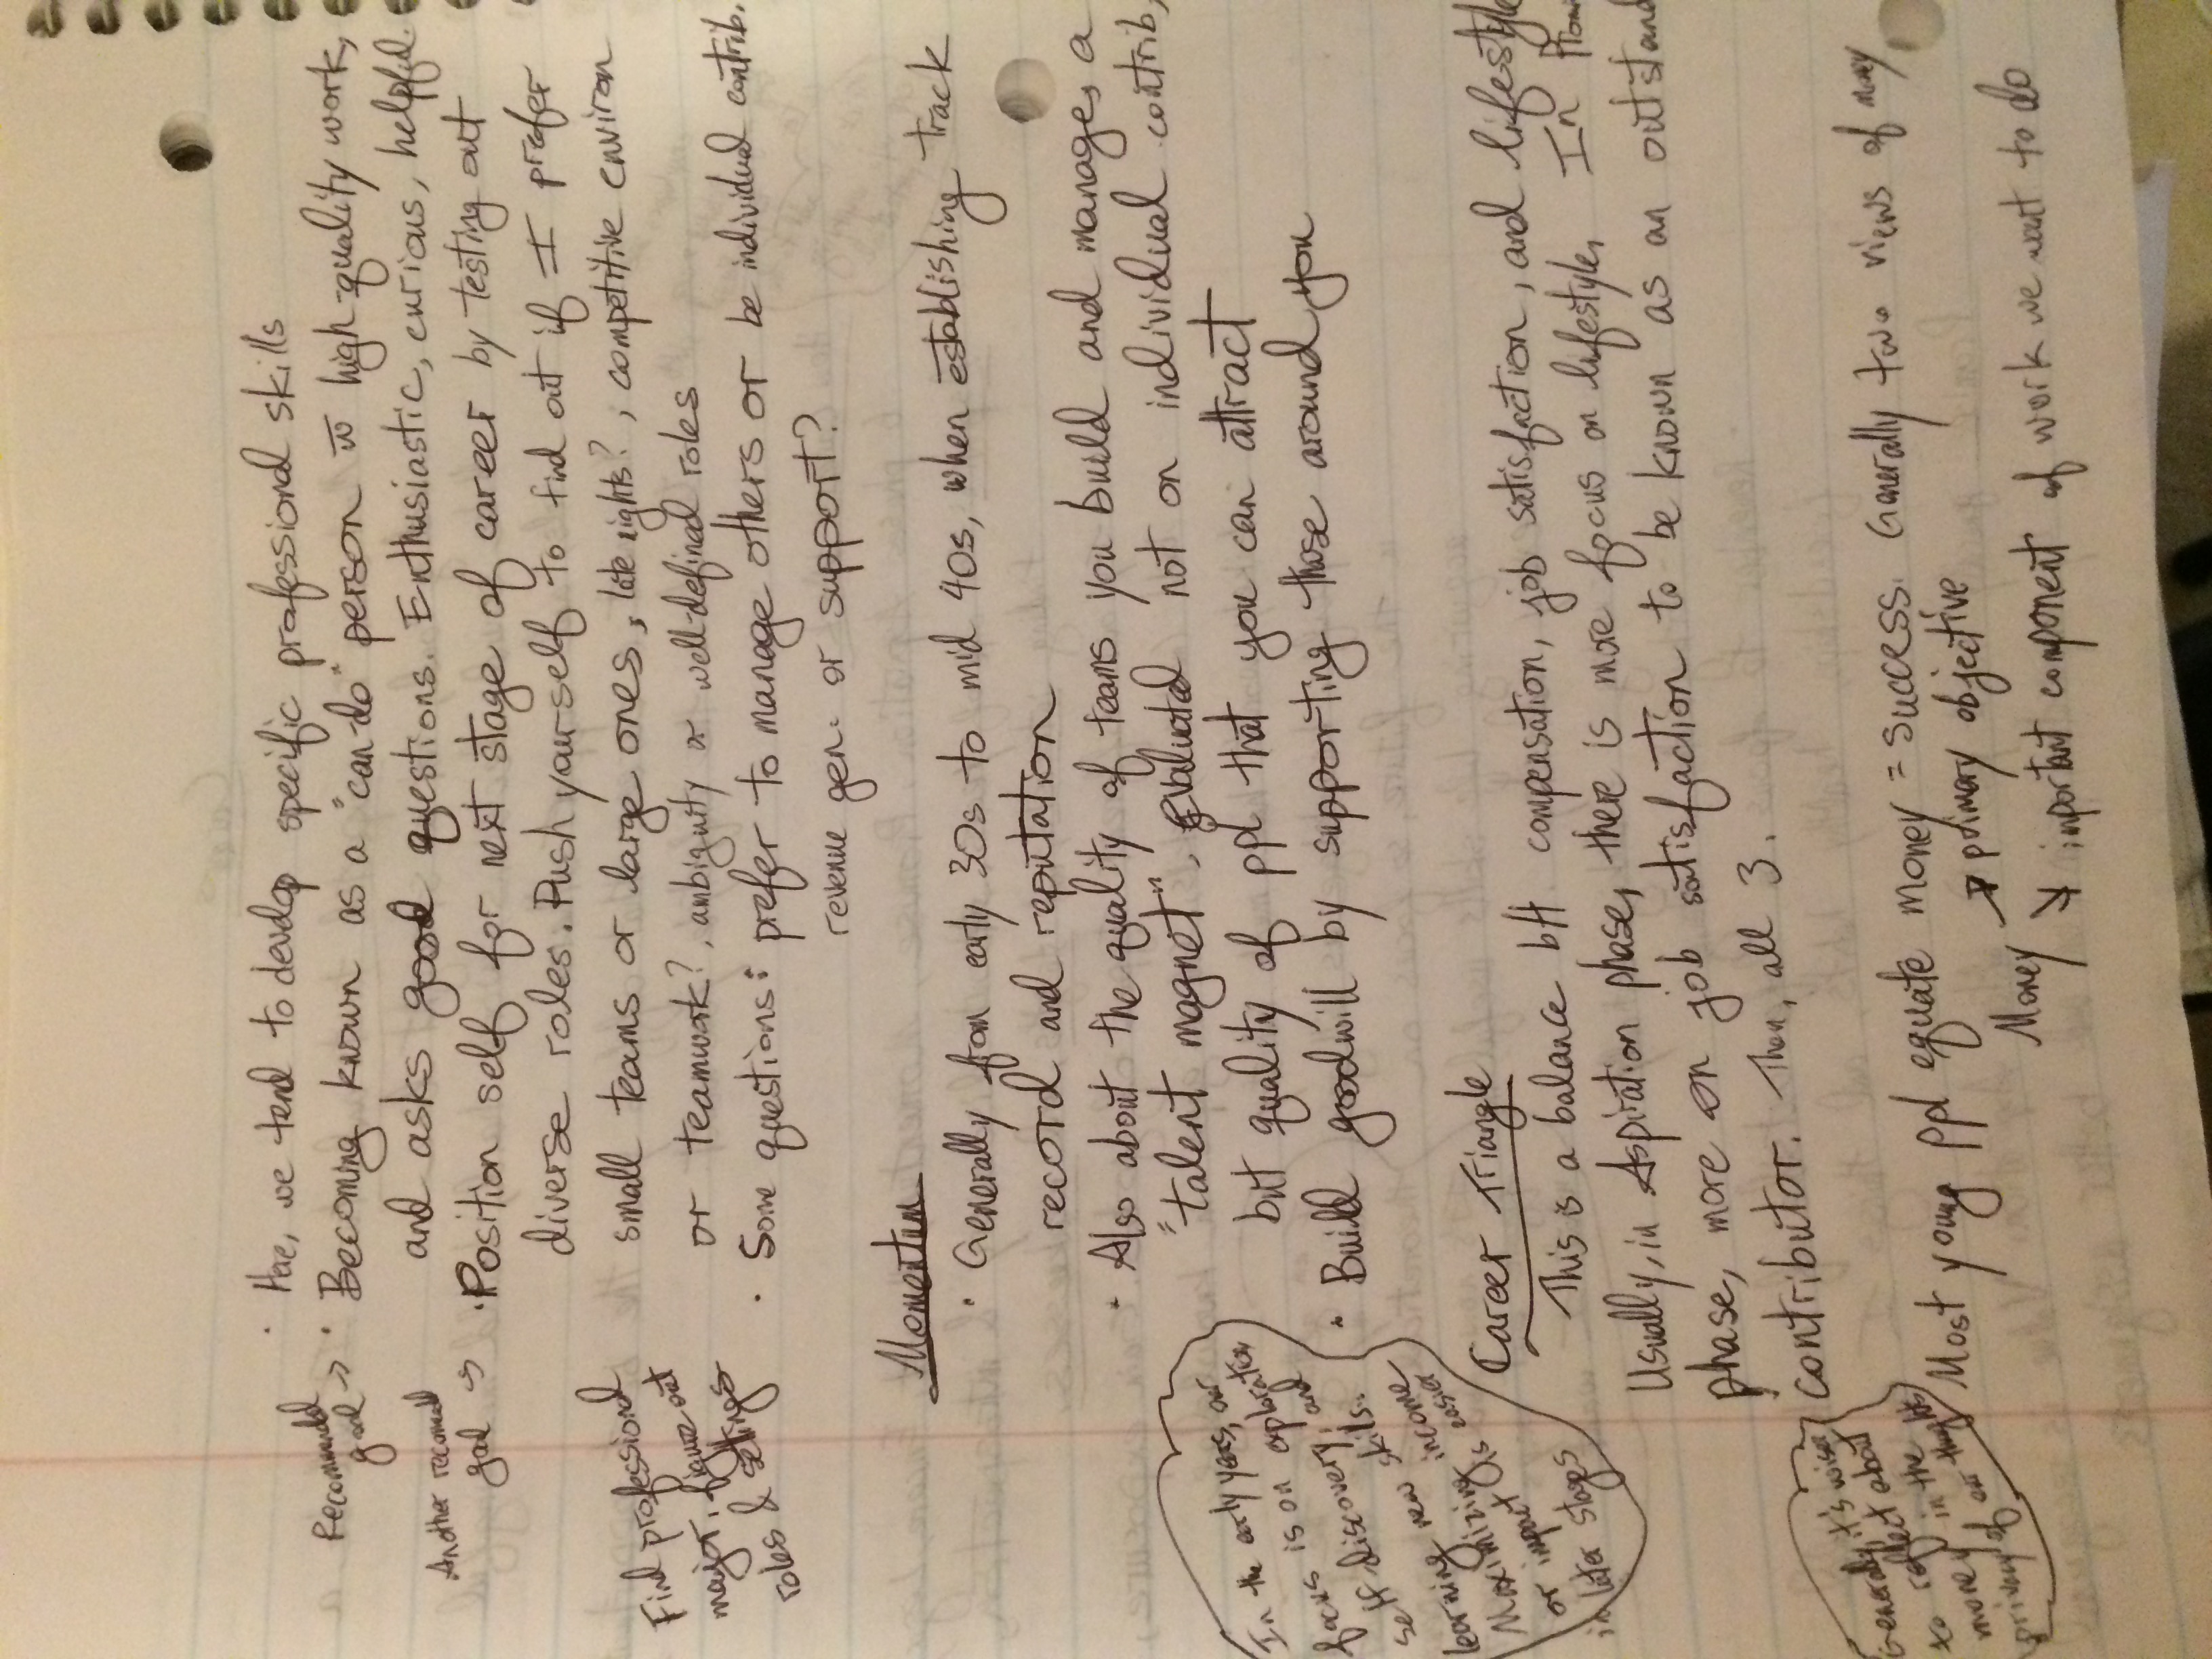 · Here, we tend to develop specific professional skills
Recommended
goal →
· Becoming known as a "can-do" person w̄ high-quality work,
and asks good questions. Enthusiastic, curious, helpful.
Another recomend
goal →
· Position self for next stage of career by testing out
diverse roles. Push yourself to find out if I prefer
small teams or large ones, late nights?, competitive environ
or teamwork?, ambiguity or well-defined roles
Find professional
major, figure out
roles & settings
· Some questions: prefer to manage others or be individual contrib.
revenue gen. or support?
Momentum
· Generally from early 30s to mid 40s, when establishing track
record and reputation
· Also about the quality of teams you build and manage, a
"talent magnet", evaluated not on individual contrib,
but quality of ppl that you can attract
· Build goodwill by supporting those around you
In the early years, our
focus is on exploration,
self-discovery, and
learning new skills.
Maximizing income
or impact is easier
in later stages
Career Triangle
This is a balance btt compensation, job satisfaction, and lifestyle
Usually, in Aspiration phase, there is more focus on lifestyle, In Prom
phase, more on job satisfaction to be known as an outstand
contributor. Then, all 3.
Generally, it's wiser
to reflect about
money in the
privacy of our thoughts
Most young ppl equate money = success. Generally two views of money
Money ↗ primary objective
↘ important component of work we want to do